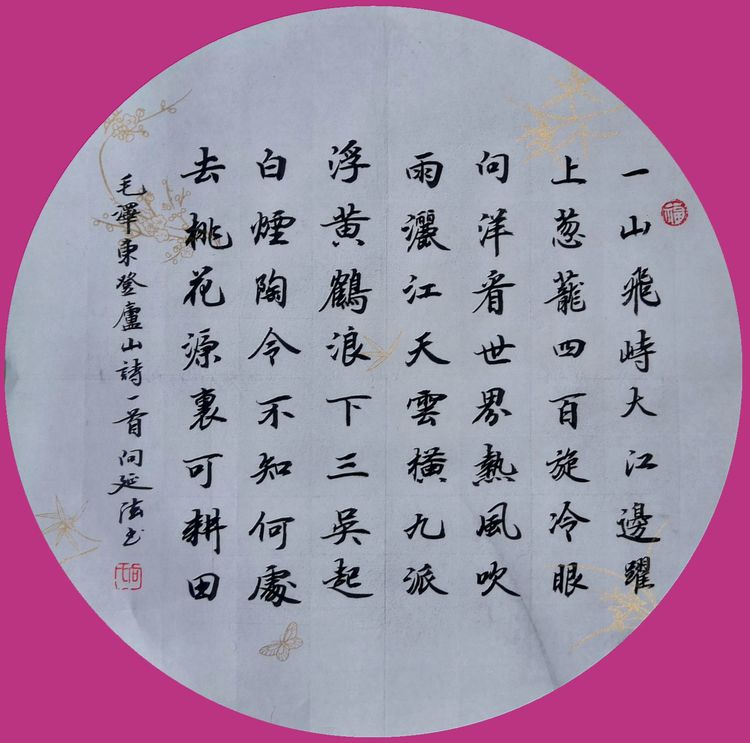 福
一山飛峙大江邊躍
上葱蘢四百旋冷眼
向洋看世界熱風吹
雨灑江天雲橫九派
浮黄鶴浪下三吳起
白煙陶令不知何處
去桃花源裏可耕田
毛澤東登廬山詩一首向延法书